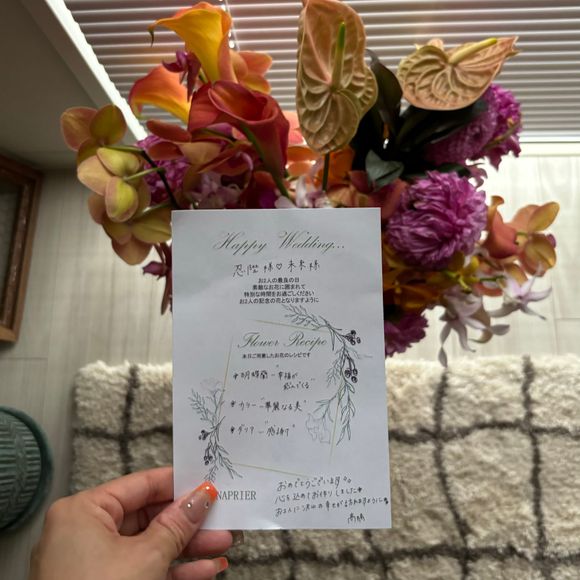 Happy Wedding...
忍階様♡未来様
お2人の最良の日
素敵なお花に囲まれて
特別な時間をお過ごしください
お2人の記念の花となりますように
Flower Recipe
本日ご用意したお花のレシピです
*胡蝶蘭-"幸福が
飛んでくる"
*カラー-"華麗なる美"
*ダリア-"感謝"
おめでとうございます
心を込めてお作りしました
お2人に沢山の幸せが訪れますように
高橋
NAPRIER